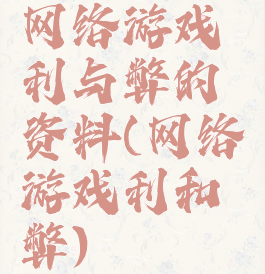 网络游戏
利与弊的
资料(网络
游戏利和
弊)